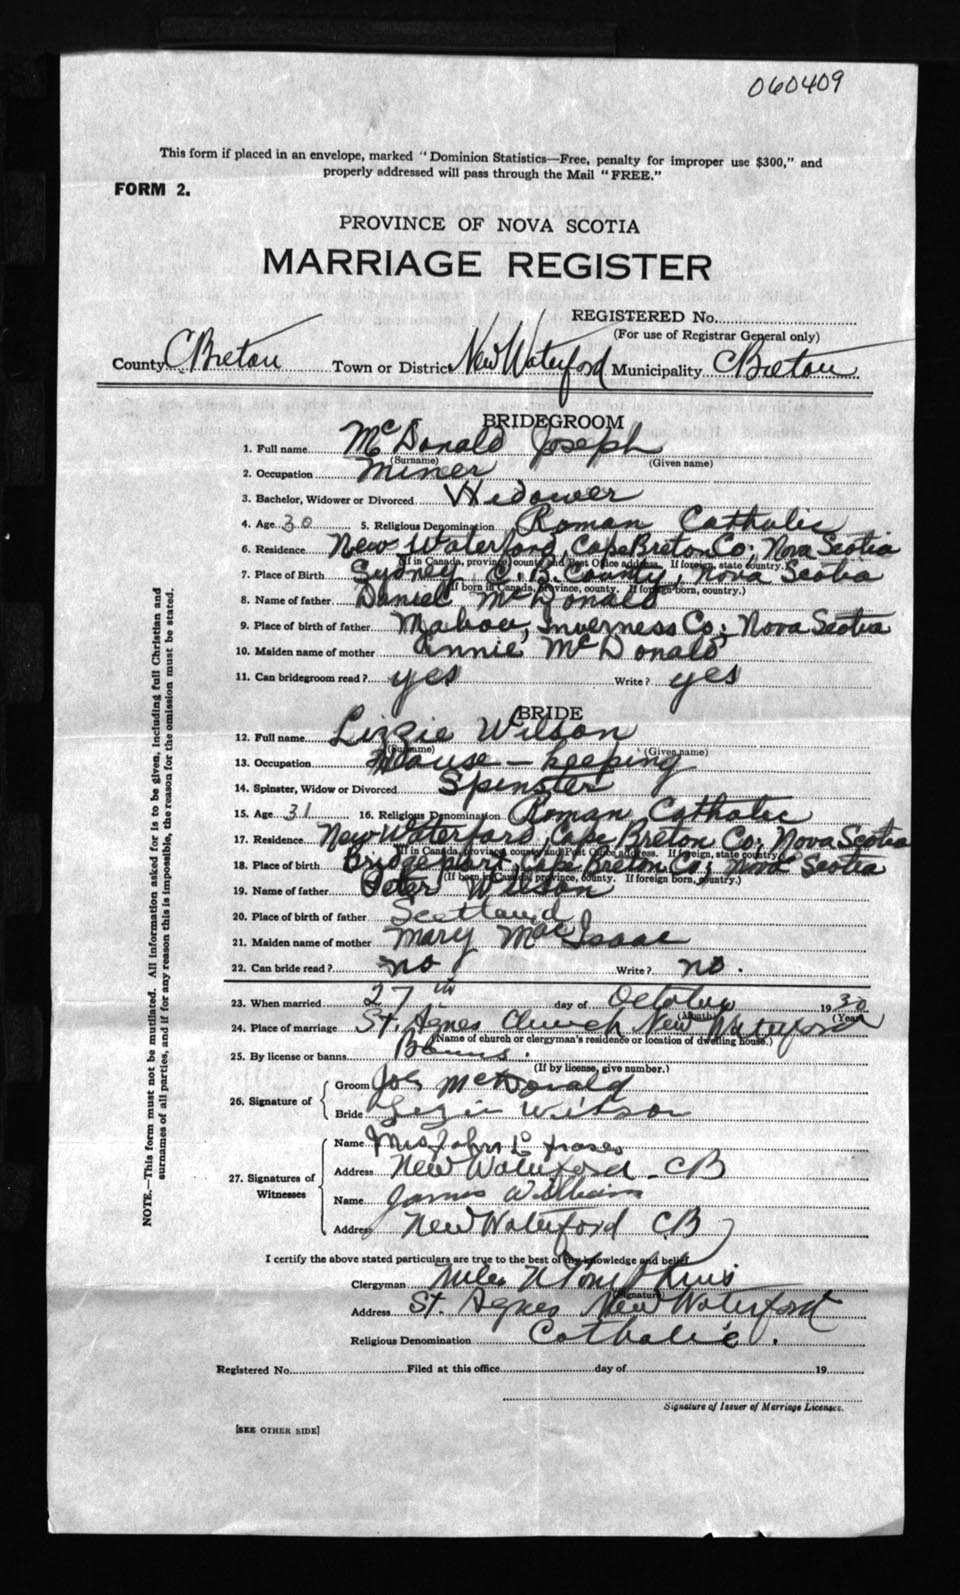 060409
This form if placed in an envelope, marked "Dominion Statistics—Free, penalty for improper use $300," and
properly addressed will pass through the Mail "FREE."
FORM 2.
PROVINCE OF NOVA SCOTIA
MARRIAGE REGISTER
REGISTERED No.
(For use of Registrar General only)
County C Breton Town or District New Waterford Municipality C Breton
BRIDEGROOM
1. Full name McDonald Joseph
(Surname) (Given name)
2. Occupation Miner
3. Bachelor, Widower or Divorced Widower
4. Age 30 5. Religious Denomination Roman Catholic
6. Residence New Waterford, Cape Breton Co; Nova Scotia
(If in Canada, province, county and Post Office address. If foreign, state country.)
7. Place of Birth Sydney C. B. County, Nova Scotia
(If born in Canada, province, county. If foreign born, country.)
8. Name of father Daniel McDonald
9. Place of birth of father Mabou, Inverness Co; Nova Scotia
10. Maiden name of mother Annie McDonald
11. Can bridegroom read? yes Write? yes
BRIDE
12. Full name Lizzie Wilson
(Surname) (Given name)
13. Occupation House - keeping
14. Spinster, Widow or Divorced Spinster
15. Age 31 16. Religious Denomination Roman Catholic
17. Residence New Waterford, Cape Breton Co; Nova Scotia
(If in Canada, province, county and Post Office address. If foreign, state country.)
18. Place of birth Bridgeport, Cape Breton Co; Nova Scotia
(If born in Canada, province, county. If foreign born, country.)
19. Name of father Peter Wilson
20. Place of birth of father Scotland
21. Maiden name of mother Mary MacIsaac
22. Can bride read? no Write? no.
23. When married 27th day of October 1930
(Month) (Year)
24. Place of marriage St. Agnes Church New Waterford
(Name of church or clergyman's residence or location of dwelling house.)
25. By license or banns Banns.
(If by license, give number.)
26. Signature of
Groom Joe McDonald
Bride Wilson
27. Signatures of Witnesses
Name Mrs John L Fraser
Address New Waterford CB
Name James
Address New Waterford CB
I certify the above stated particulars are true to the best of my knowledge and belief.
Clergyman Miles N Tompkins
(Signature)
Address St. Agnes New Waterford
Religious Denomination Catholic.
Registered No. Filed at this office day of 19
Signature of Issuer of Marriage Licenses.
[SEE OTHER SIDE]
NOTE.—This form must not be mutilated. All information asked for is to be given, including full Christian and
surnames of all parties, and if for any reason this is impossible, the reason for the omission must be stated.